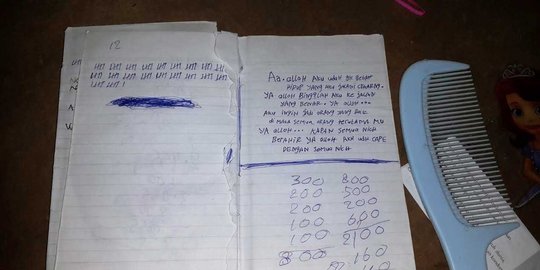 12
Aa. ALLOH AKU UDAH BETAH
HIDUP YANG AKU JALANI
YA ALLOH AKU KE JALAN
YANG BENAR.. YA ALLOH...
AKU INGIN JADI ORANG YANG BAIK
DI MATA SEMUA ORANG TERUTAMA MU
YA ALLOH... KAPAN SEMUA NICH
BERAHIR YA ALLOH AKU UDH CAPE
DENGAN SEMUA NICH
300 800
200 500
200 200
100 600
100 2100
800 160